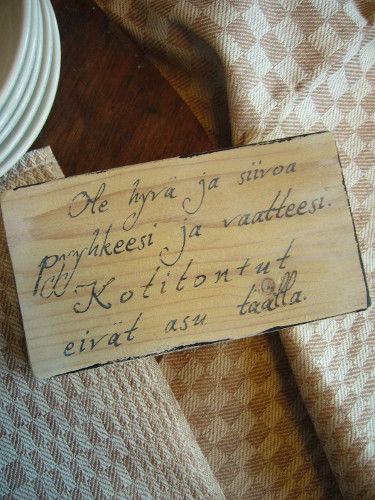 Ole hyvä ja siivoa
pyyhkeesi ja vaatteesi.
Kotitontut
eivät asu täällä.